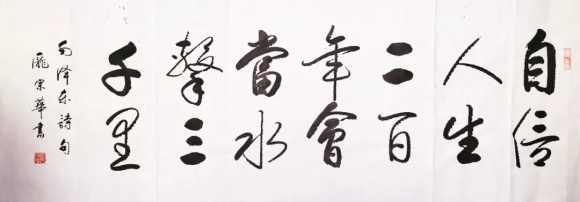 自信
人生
二百
年會
當水
擊三
千里
毛泽东詩句
龐宗華書